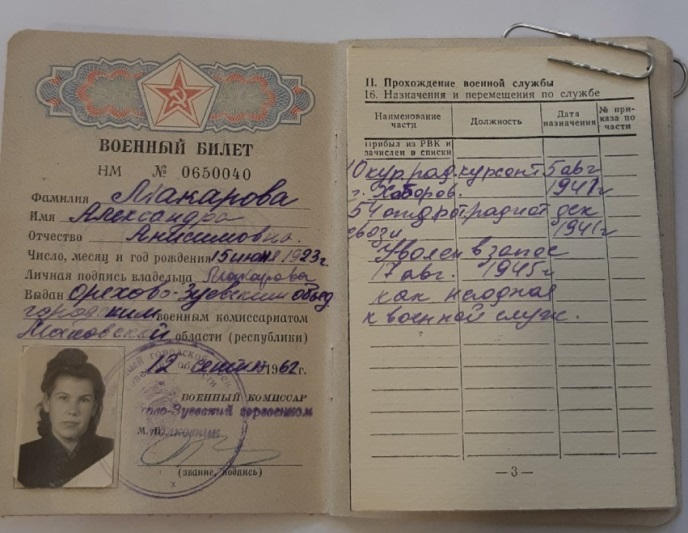 ВОЕННЫЙ БИЛЕТ
НМ № 0650040
Фамилия Макарова
Имя Александра
Отчество Анисимовна.
Число, месяц и год рождения 15 июня 1923 г.
Личная подпись владельца Макарова
Выдан Орехово-Зуевским объед.
городским военным комиссариатом
Московской области (республики)
12 сентяб 1962 г.
ВОЕННЫЙ КОМИССАР
М. П.
(звание, подпись)
II. Прохождение военной службы
16. Назначения и перемещения по службе
Наименование части
Должность
Дата назначения
№ приказа по части
Прибыл из РВК и
зачислен в списки
курсант 5 авг
г. 1941 г
54 дек
связи 1941 г
Уволен в запас
17 авг. 1945 г
как негодная
к военной служ.
— 3 —